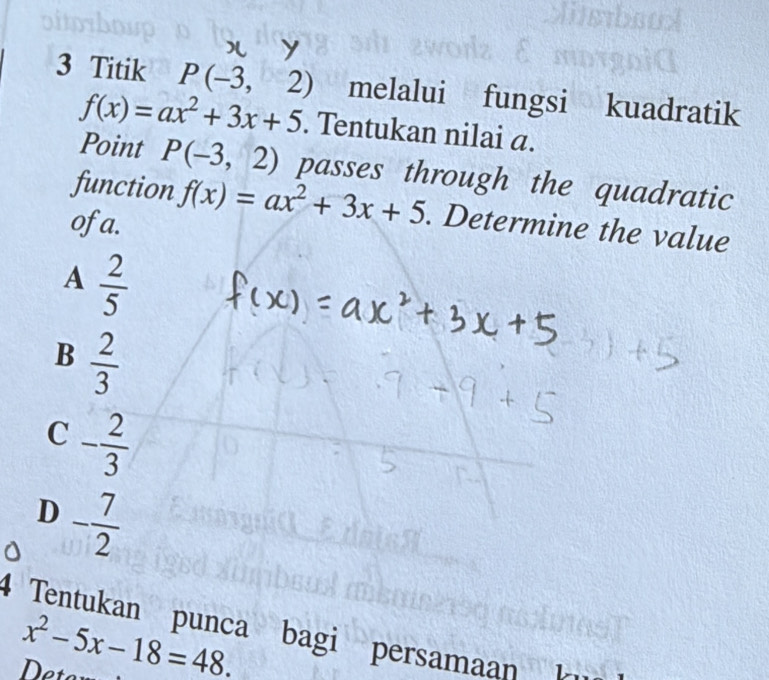 x y
3 Titik P(−3, 2) melalui fungsi kuadratik
f(x) = ax² + 3x + 5. Tentukan nilai a.
Point P(−3, 2) passes through the quadratic
function f(x) = ax² + 3x + 5. Determine the value
of a.
A 2/5
f(x) = ax² + 3x + 5
B 2/3
C −2/3
D −7/2
4 Tentukan punca bagi persamaan
x² − 5x − 18 = 48.